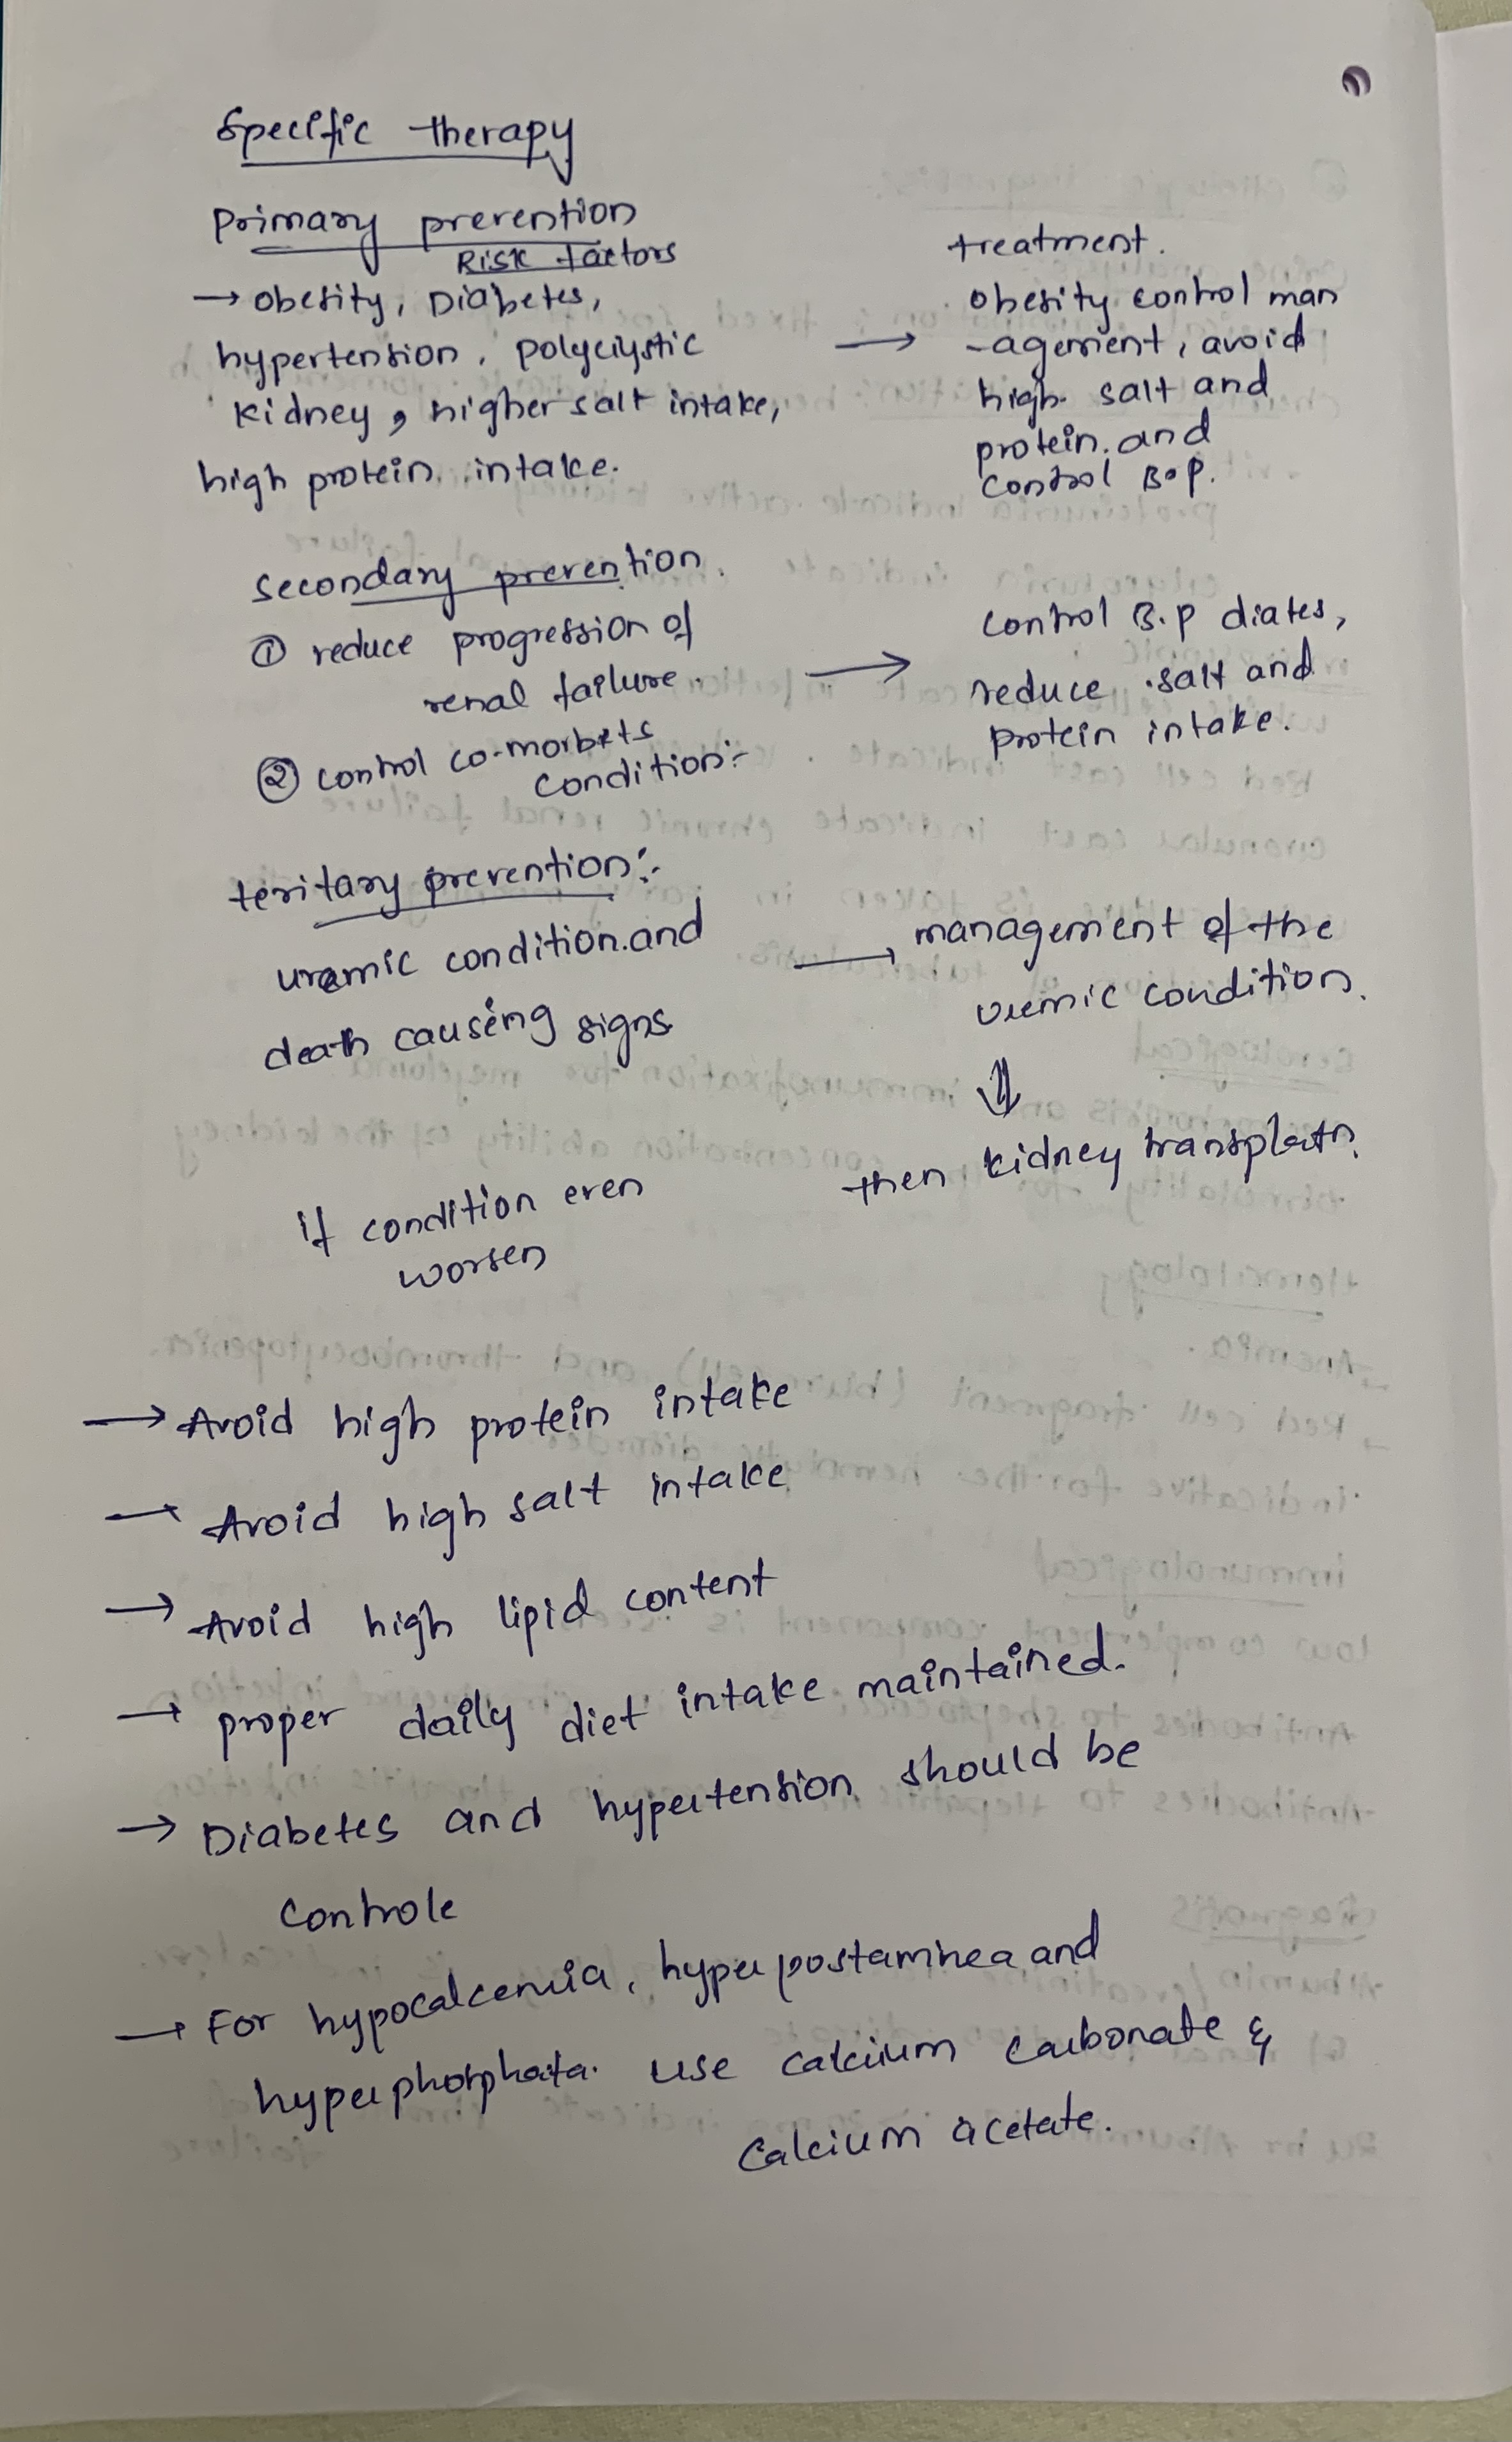 Specific therapy
Primary prevention
Risk factors
→ obesity, Diabetes,
hypertension, polyciystic
kidney, higher salt intake,
high protein intake.
→
treatment.
obesity control man
-agement, avoid
high salt and
protein. and
control B.p.
secondary prevention.
① reduce progression of
renal failure.
② control co-morbits
condition:-
→
control B.p diates,
reduce salt and
protein intake.
teritary prevention:-
uramic condition and
death causing signs
→ management of the
uremic condition.
⇓
if condition even
worsen
then kidney transplatn.
→ Avoid high protein intake
→ Avoid high salt intake
→ Avoid high lipid content
→ proper daily diet intake maintained.
→ Diabetes and hypertension should be
controle
→ For hypocalcemia, hyperpostaminea and
hyperphosphata. use calcium carbonate &
calcium acetate.